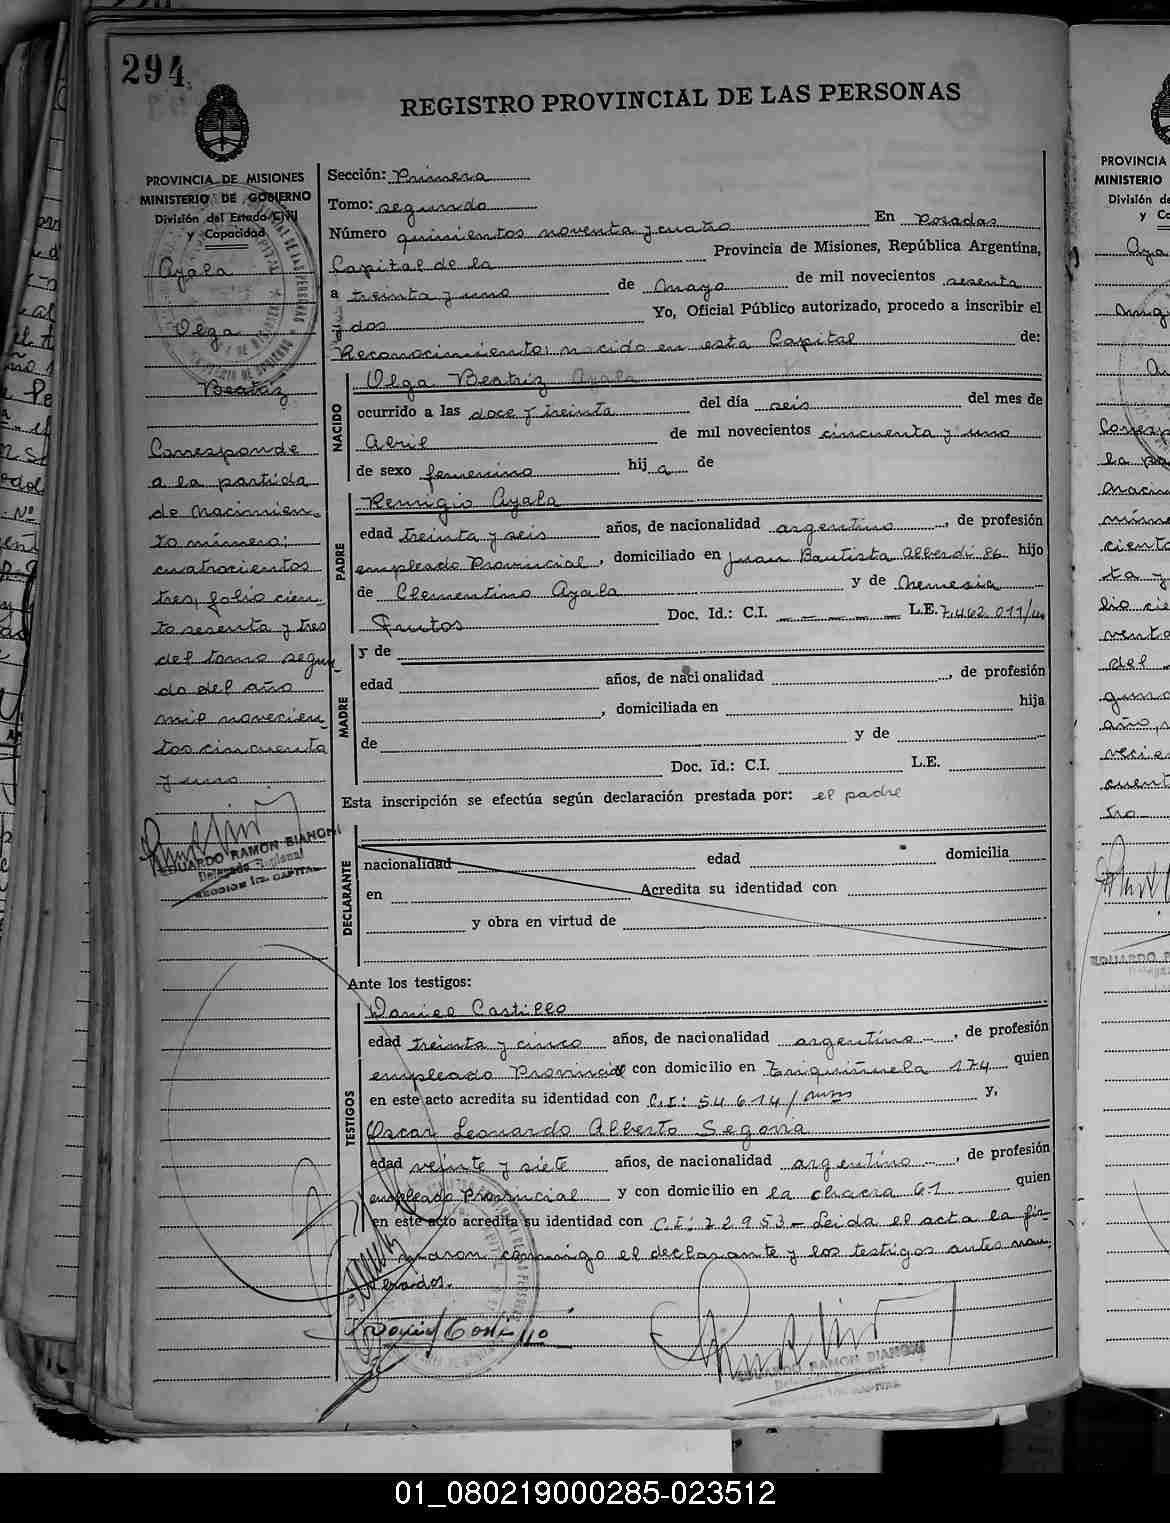 294
REGISTRO PROVINCIAL DE LAS PERSONAS
PROVINCIA DE MISIONES
MINISTERIO DE GOBIERNO
División del Estado Civil
y Capacidad
Ayala
Olga
Beatriz
Corresponde
a la partida
de nacimien-
to número;
cuatrocientos
tres, folio cien-
to sesenta y tres
del tomo segun-
do del año
mil novecien-
tos cincuenta
y uno
EDUARDO RAMON BIANCHI
Delegado Regional
SECCION 1ra. CAPITAL
Sección: Primera
Tomo: segundo
Número quinientos noventa y cuatro En Posadas
Capital de la Provincia de Misiones, República Argentina,
a treinta y uno de Mayo de mil novecientos sesenta
y dos Yo, Oficial Público autorizado, procedo a inscribir el
Reconocimiento, nacido en esta Capital de:
NACIDO
Olga Beatriz Ayala
ocurrido a las doce y treinta del día seis del mes de
Abril de mil novecientos cincuenta y uno
de sexo femenino hij a de
PADRE
Remigio Ayala
edad treinta y seis años, de nacionalidad argentino, de profesión
empleado Provincial, domiciliado en Juan Bautista Alberdi 86 hijo
de Clementino Ayala y de Nemesia
Frutos Doc. Id.: C.I. — — — — — L.E. 7.462.011/
MADRE
y de
edad años, de nacionalidad , de profesión
, domiciliada en hija
de y de
Doc. Id.: C.I. L.E.
Esta inscripción se efectúa según declaración prestada por: el padre
DECLARANTE
nacionalidad edad domicilia
en Acredita su identidad con
y obra en virtud de
Ante los testigos:
TESTIGOS
Daniel Castillo
edad treinta y cinco años, de nacionalidad argentino —, de profesión
empleado Provincial con domicilio en Trinquiñuela 174 quien
en este acto acredita su identidad con C.I: 54614/ y,
Oscar Leonardo Alberto Segovia
edad veinte y siete años, de nacionalidad argentino —, de profesión
empleado Provincial y con domicilio en la chacra 61 quien
en este acto acredita su identidad con C.I: 22953- Leida el acta la fir-
maron conmigo el declarante y los testigos antes nom-
brados.
EDUARDO RAMON BIANCHI
PROVINCIA
MINISTERIO
División de
y Ca
01_080219000285-023512